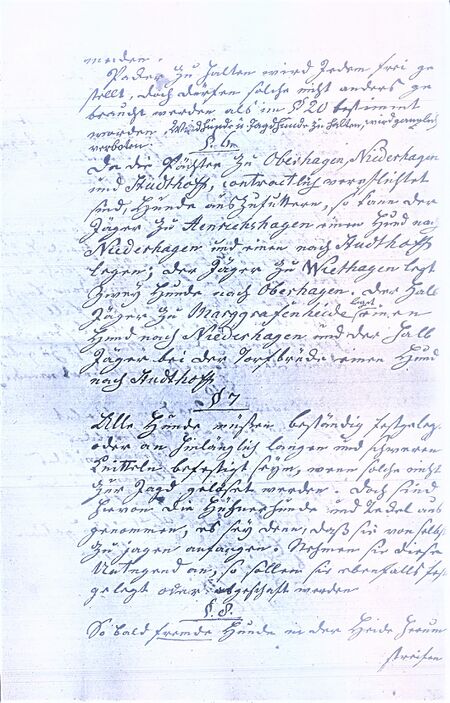 werden.
Pader zu halten wird Jedem frei ge
stellt, doch dürfen solche nicht anders ge
braucht werden als im § 20 bestimmt
worden, Windhunde u Jagdhunde zu halten, wird gänzlich
verboten.
§. 6.
Da die Pächter zu Oberhagen, Niederhagen
und Hudthoff, contractlich verpflichtet
sind, Hunde auszufuttern, so kann der
Jäger zu Henrichshagen einen Hund nach
Niederhagen und einen nach Hudthoff
legen; der Jäger zu Wiethagen legt
zway Hunde nach Oberhagen. Der Halb
Jäger zu Marggrafenheide legt einen
Hund nach Niederhagen und der Halb
Jäger bei der Torfbrücke einen Hund
nach Hudthoff
§ 7
Alle Hunde müßen beständig festgeleg.
oder an hinlänglich langen und schweren
Knitteln befestigt seyn, wenn solche nicht
zur Jagd gelöset werden. Doch sind
hievon die Hühnerhunde und Tekel aus
genommen, es sey denn, daß sie von selbst
zu jagen anfangen. Nehmen sie diese
Untugend an, so sollen sie ebenfalls fest
gelegt oder abgeschaft werden
§. 8.
So bald fremde Hunde in der Heide herum
streifen